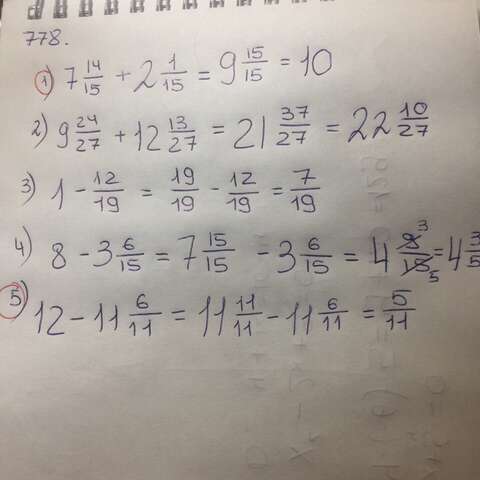 778.
1) 7 14/15 + 2 1/15 = 9 15/15 = 10
2) 9 24/27 + 12 13/27 = 21 37/27 = 22 10/27
3) 1 - 12/19 = 19/19 - 12/19 = 7/19
4) 8 - 3 6/15 = 7 15/15 - 3 6/15 = 4 9/15 3 5 = 4 3/5
5) 12 - 11 6/11 = 11 11/11 - 11 6/11 = 5/11